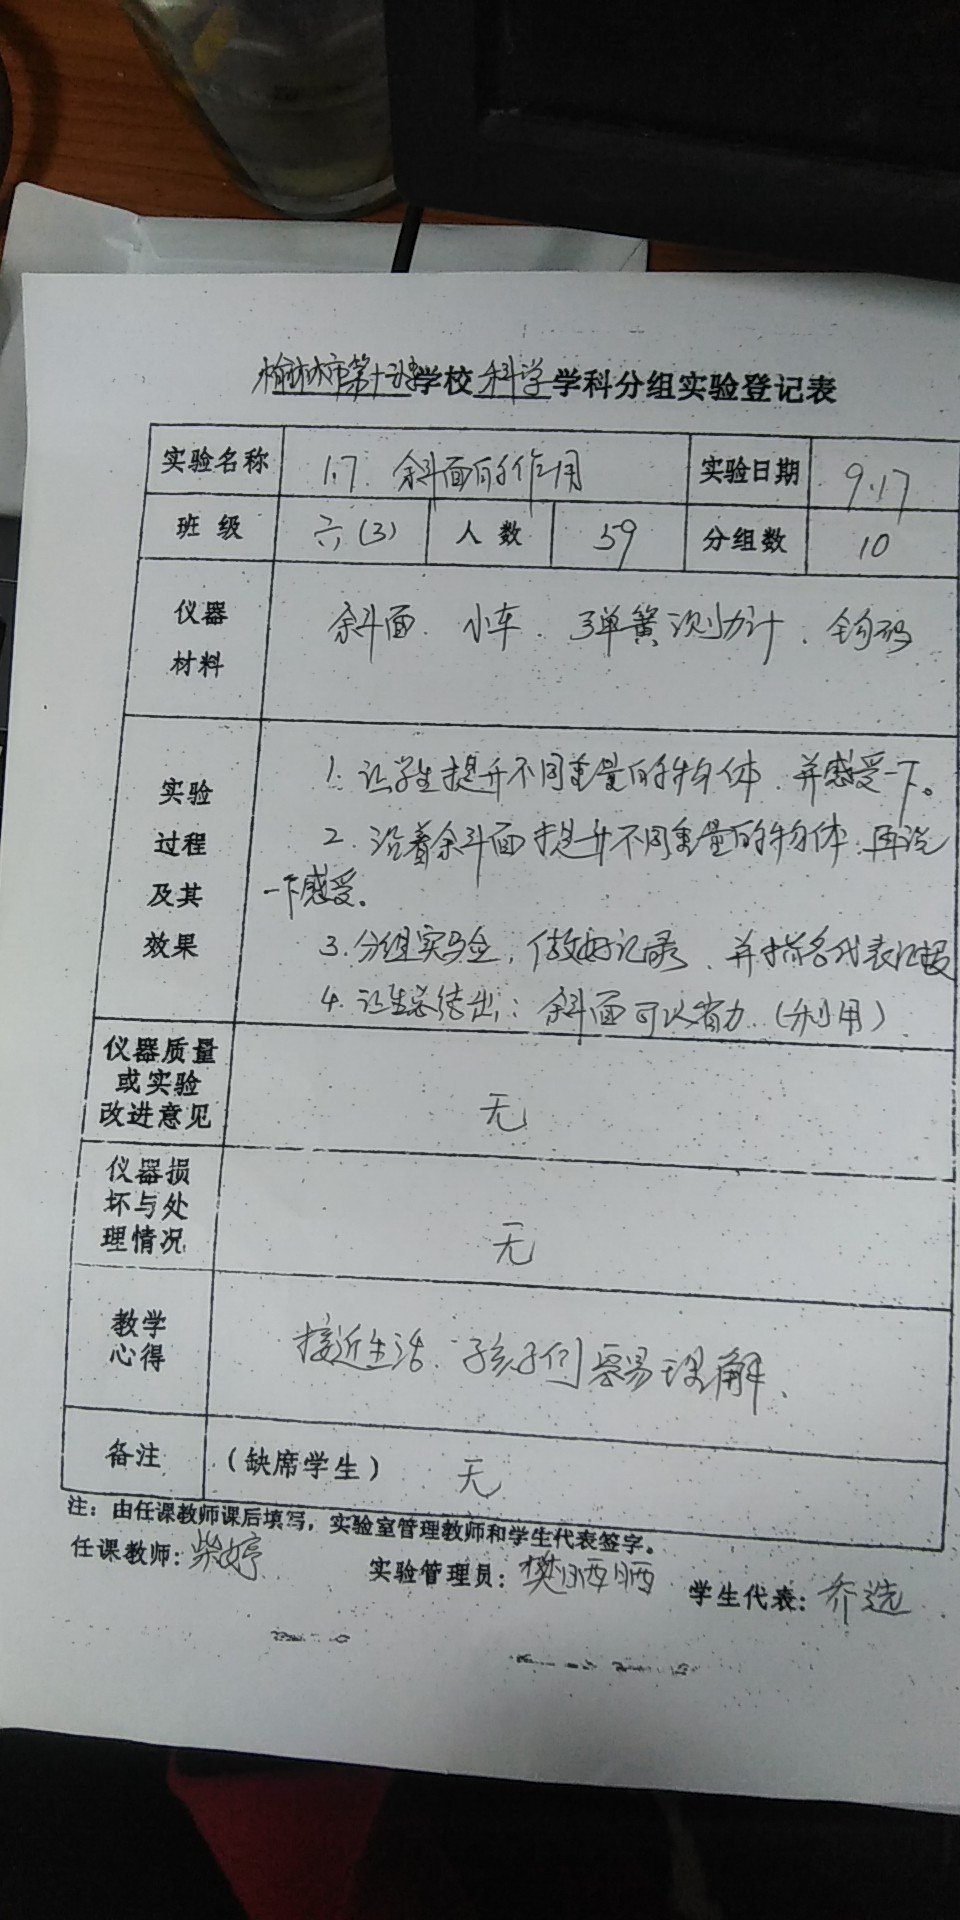 榆林市第十二小学校科学学科分组实验登记表
实验名称 1.7 斜面的作用 实验日期 9.17
班级 六(3) 人数 59 分组数 10
仪器材料 斜面、小车、弹簧测力计、钩码
实验过程及其效果
1. 让学生提升不同重量的物体,并感受一下。
2. 沿着斜面提升不同重量的物体,再说
一下感受。
3. 分组实验,做好记录、并指名代表汇报
4. 让生总结出:斜面可以省力(利用)
仪器质量或实验改进意见 无
仪器损坏与处理情况 无
教学心得 接近生活、孩子们容易理解、
备注 (缺席学生) 无
注:由任课教师课后填写,实验室管理教师和学生代表签字。
任课教师:柴婷 实验管理员:樊晒晒 学生代表:乔选